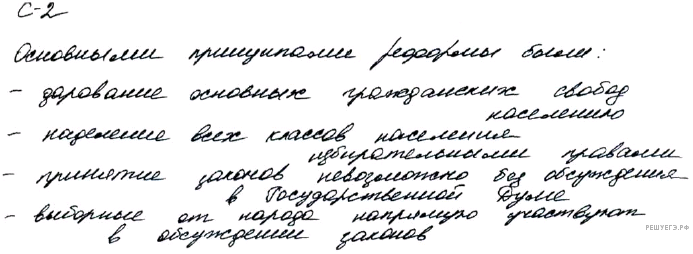 С-2
Основными принципами реформы были:
- дарование основных гражданских свобод
населению
- наделение всех классов населения
избирательными правами
- принятие законов невозможно без обсуждения
в Государственной Думе
- выборные от народа напрямую участвуют
в обсуждении законов
РЕШУЕГЭ.РФ